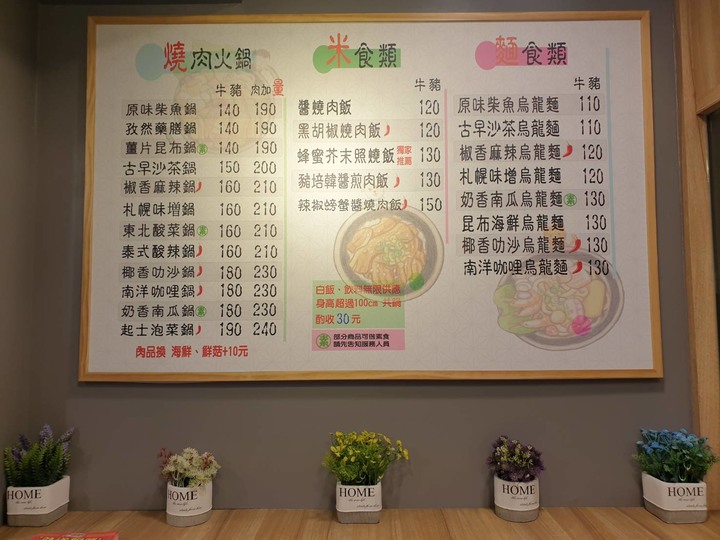 燒肉火鍋
牛豬 肉加量
原味柴魚鍋 140 190
孜然藥膳鍋 140 190
薑片昆布鍋 素 140 190
古早沙茶鍋 150 200
椒香麻辣鍋 160 210
札幌味增鍋 160 210
東北酸菜鍋 素 160 210
泰式酸辣鍋 160 210
椰香叻沙鍋 180 230
南洋咖哩鍋 180 230
奶香南瓜鍋 素 180 230
起士泡菜鍋 190 240
肉品換 海鮮、鮮菇+10元
米食類
牛豬
醬燒肉飯 120
黑胡椒燒肉飯 120
蜂蜜芥末照燒飯 獨家推薦 130
豬培韓醬煎肉飯 130
辣椒螃蟹醬燒肉飯 150
白飯、飲料無限供應
身高超過100cm 共鍋
酌收30元
素 部分商品可做素食
請先告知服務人員
麵食類
牛豬
原味柴魚烏龍麵 110
古早沙茶烏龍麵 110
椒香麻辣烏龍麵 120
札幌味增烏龍麵 120
奶香南瓜烏龍麵 素 130
昆布海鮮烏龍麵 130
椰香叻沙烏龍麵 130
南洋咖哩烏龍麵 130
HOME
HOME
HOME
HOME
HOME